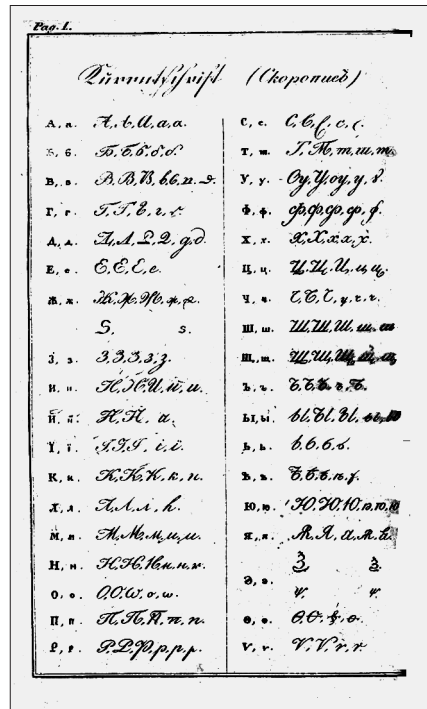 Pag. 1.
Kurrentschrift (Скорописъ)
А, а. А, А, U, а, а.
Б, б. Б, Б, б, б, б.
В, в. В, В, В, в, в, в.
Г, г. Г, Г, Г, г, г.
Д, д. Д, Д, Д, g, д.
Е, е. Е, Е, Е, е.
Ж, ж. Ж, Ж, Ж, ж, ж.
Ѕ, ѕ.
З, з. З, З, З, з, з.
И, и. И, И, И, и, и.
Й, й. Й, Й, й.
Ї, ї. І, І, І, і, ї.
К, к. К, К, К, к, к.
Л, л. Л, Л, л, л.
М, м. М, М, м, м, м.
Н, н. Н, Н, Н, н, н, н.
О, о. О, О, ѡ, о, ѡ.
П, п. П, П, П, п, п.
Р, р. Р, Р, Р, р, р, р.
С, с. С, С, С, с, с.
Т, т. Т, Т, т, т, т.
У, у. Оу, У, оу, у, ꙋ.
Ф, ф. Ф, ф, ф, ф, ф.
Х, х. Х, Х, х, х, х.
Ц, ц. Ц, Ц, Ц, ц, ц.
Ч, ч. Ч, Ч, Ч, ч, ч, ч.
Ш, ш. Ш, Ш, Ш, ш, ш.
Щ, щ. Щ, Щ, Щ, щ, щ.
Ъ, ъ. Ъ, Ъ, Ъ, ъ, Ъ.
Ы, ы. Ы, Ы, Ы, ы, ы.
Ь, ь. Ь, ь, ь, ь.
Ѣ, ѣ. Ѣ, Ѣ, ѣ, ѣ, ѣ.
Ю, ю. Ю, Ю, Ю, ю, ю, ю.
Я, я. Я, Я, я, я, я.
Ѯ, ѯ.
Э, э.
Ѱ, ѱ.
Ѳ, ѳ. Ѳ, Ѳ, ѳ, ѳ.
Ѵ, ѵ. Ѵ, Ѵ, ѵ, ѵ.